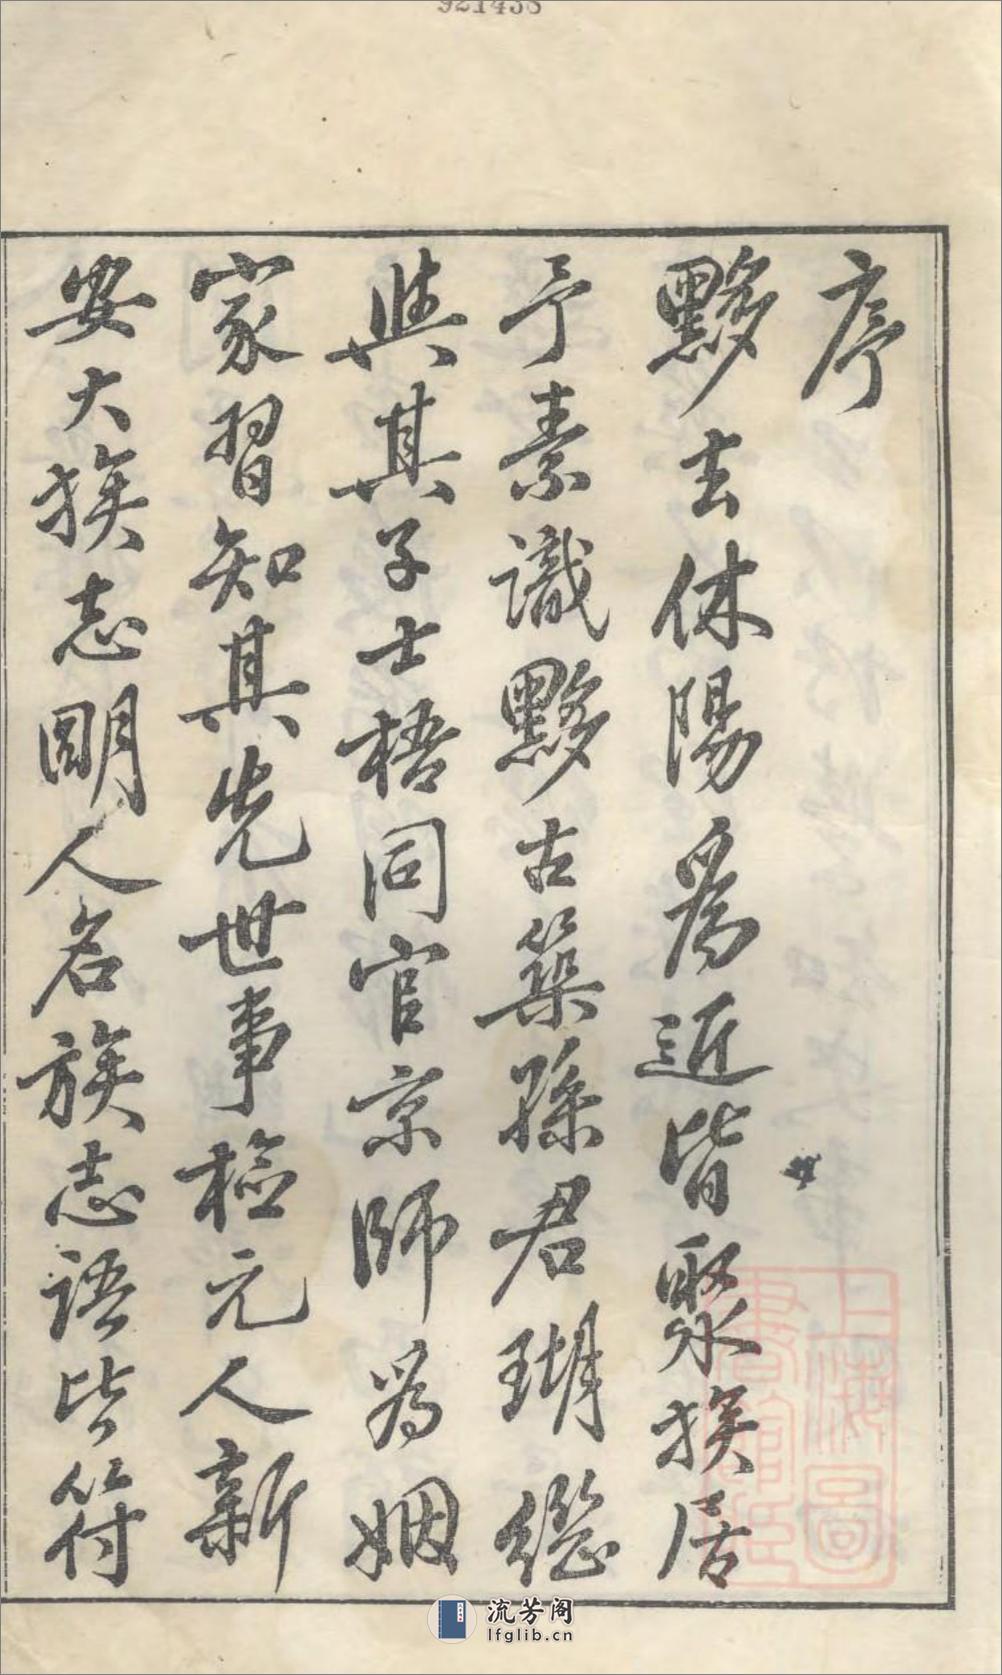 921438
序
黟去休陽爲近皆聚族居
予素識黟古築孫君瑚繼
與其子士梧同官京師爲姻
家習知其先世事檢元人新
安大族志明人名族志語皆符
上海圖書館藏
流芳阁
lfglib.cn